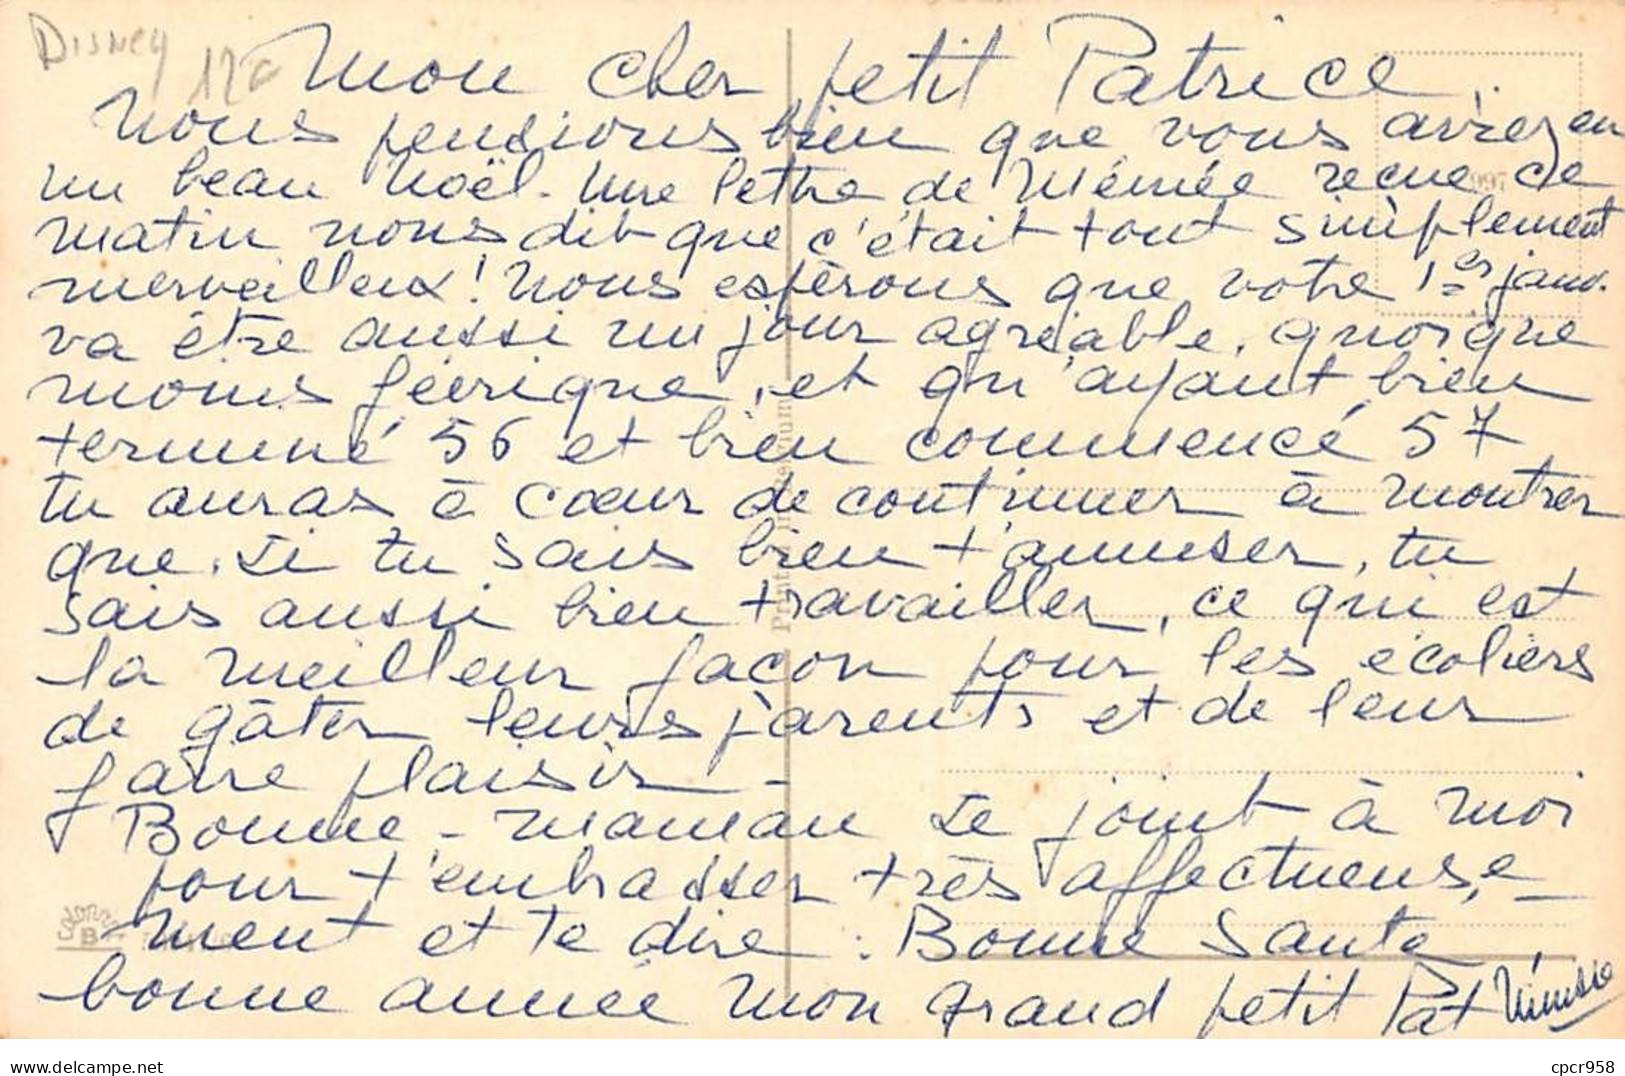 Disney
12€
Mon cher petit Patrice.
Nous pensions bien que vous aviez eu
un beau Noël. Une lettre de Mémée reçue ce
matin nous dit que c'était tout simplement
merveilleux! Nous espérons que votre 1er janv.
va être aussi un jour agréable, quoique
moins féérique, et qu'ayant bien
terminé 56 et bien commencé 57
tu auras à cœur de continuer à montrer
que, si tu sais bien t'amuser, tu
sais aussi bien travailler, ce qui est
la meilleur façon pour les écoliers
de gâter leurs parents et de leur
faire plaisir -
Bonne-maman se joint à moi
pour t'embrasser très affectueuse-
ment et te dire : Bonne Santé,
bonne année mon grand petit Pat
Printed in Belgium
997
Colorprint
B
Delcampe.net
cpcr958